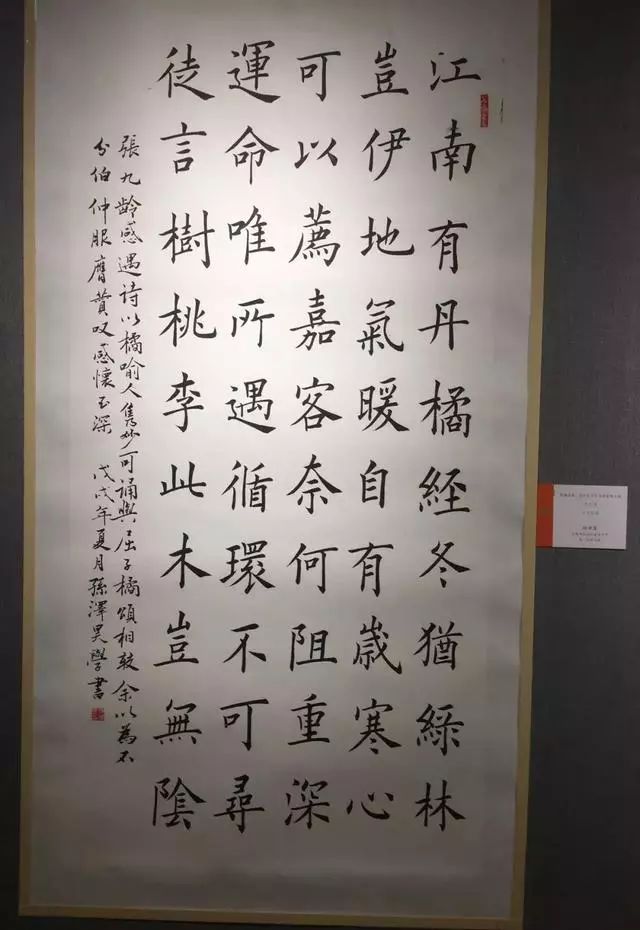 江南有丹橘經冬猶綠林
豈伊地氣暖自有歲寒心
可以薦嘉客奈何阻重深
運命唯所遇循環不可尋
徒言樹桃李此木豈無陰
張九齡感遇诗以橘喻人隽妙可誦與屈子橘頌相較余以為不
分伯仲服膺贊叹感懷至深 戊戌年夏月孫澤昊學書